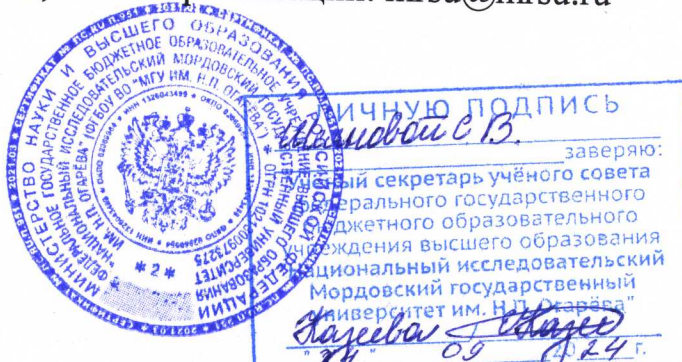 mrsu@mrsu.ru
МИНИСТЕРСТВО НАУКИ И ВЫСШЕГО ОБРАЗОВАНИЯ РОССИЙСКОЙ ФЕДЕРАЦИИ
ФЕДЕРАЛЬНОЕ ГОСУДАРСТВЕННОЕ БЮДЖЕТНОЕ ОБРАЗОВАТЕЛЬНОЕ УЧРЕЖДЕНИЕ ВЫСШЕГО ОБРАЗОВАНИЯ
"НАЦИОНАЛЬНЫЙ ИССЛЕДОВАТЕЛЬСКИЙ МОРДОВСКИЙ ГОСУДАРСТВЕННЫЙ УНИВЕРСИТЕТ
ИМ. Н.П. ОГАРЁВА" (ФГБОУ ВО "МГУ ИМ. Н.П. ОГАРЁВА")
* 2 *
ЛИЧНУЮ ПОДПИСЬ
С. В.
заверяю:
секретарь учёного совета
федерального государственного
бюджетного образовательного
учреждения высшего образования
Национальный исследовательский
Мордовский государственный
университет им. Н.П. Огарёва"
09 2024 г.